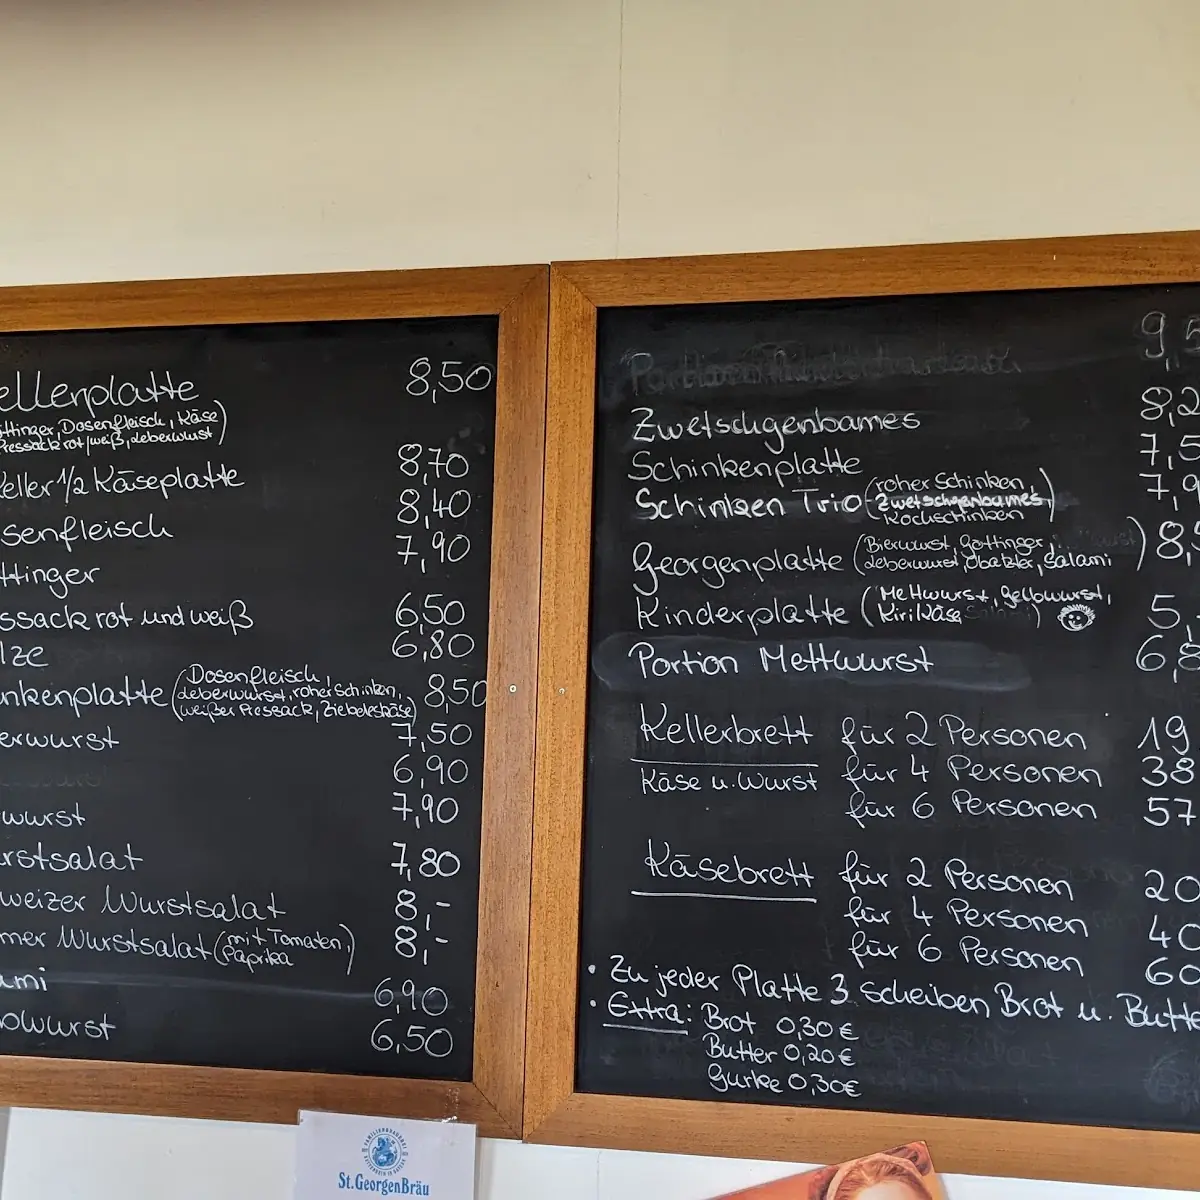 ellerplatte 8,50
ttinger, Dosenfleisch, Käse
Pressack rot/weiß, Leberwurst)
eller 1/2 Käseplatte 8,70
senfleisch 8,40
ttinger 7,90
ssack rot und weiß 6,50
lze 6,80
nkenplatte (Dosenfleisch, Leberwurst, roher Schinken, weißer Pressack, Ziebeleskäse) 8,50
erwurst 7,50
6,90
wurst 7,90
rstsalat 7,80
weizer Wurstsalat 8,-
mer Wurstsalat (mit Tomaten, Paprika) 8,-
ami 6,90
bwurst 6,50
St.GeorgenBräu
9,5
Zwetschgenbames 8,2
Schinkenplatte 7,5
Schinken Trio (roher Schinken, Zwetschgenbames, Kochschinken) 7,9
Georgenplatte (Bierwurst, Göttinger, Leberwurst, Obatzter, Salami) 8,
Kinderplatte (Mettwurst, Gelbwurst, Kiri Käse) 5,
Portion Mettwurst 6,8
Kellerbrett für 2 Personen 19
Käse u. Wurst für 4 Personen 38
für 6 Personen 57
Käsebrett für 2 Personen 20
für 4 Personen 40
für 6 Personen 60
• Zu jeder Platte 3 Scheiben Brot u. Butte
• Extra: Brot 0,30 €
Butter 0,20 €
Gurke 0,30€